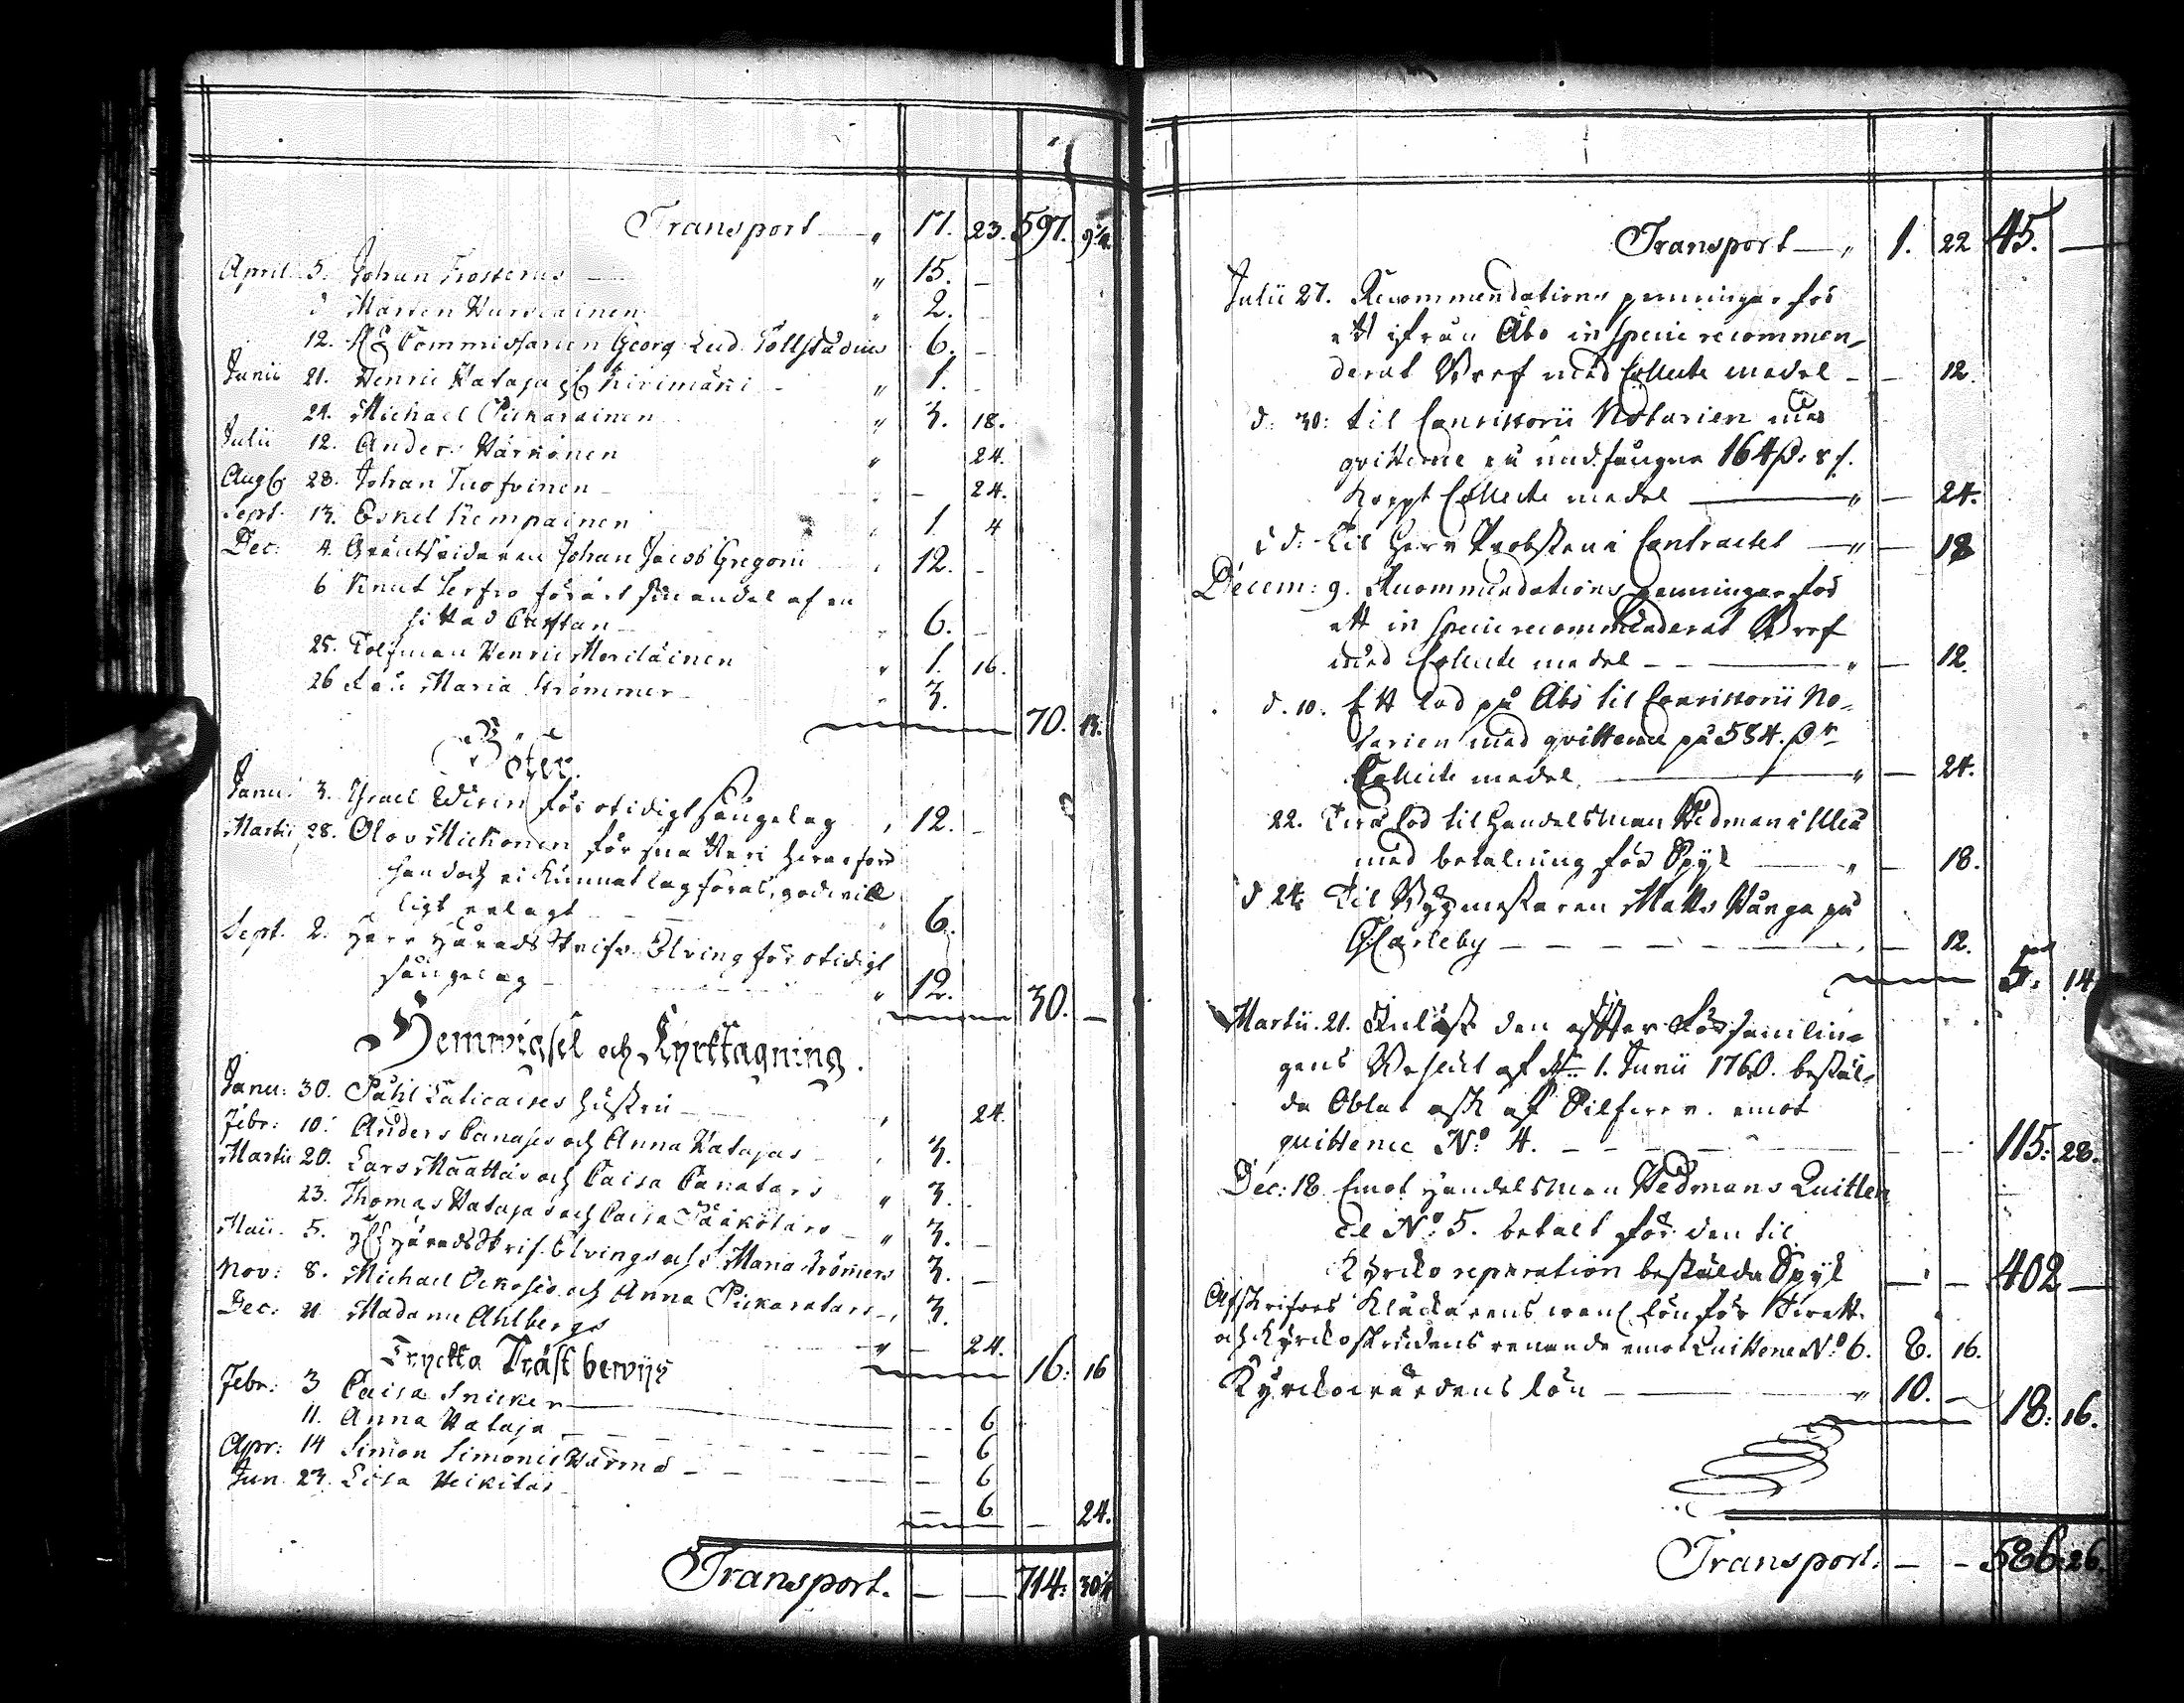 Transport — " 17. 23. 597. 9 1/2.
April. 5. Johan Frosterus — " 15. —
d Mårten Hurskainen " 2. —
12. Commissarien Georg Lud. Tollstadius 6. —
Junii 21. Henric Hataja Kirimäki — " 1. —
24. Michael Pickarainen " 3. 18.
Julii 12. Anders Härkönen " 24.
Aug 28. Johan Tuofvinen — — 24.
Sept. 13. Eskel Kempainen 1 4
Dec: 4. Johan Jacob Gregorii 12. —
6 Knut Terfvo förärt sin andel af en
hittad Carftan — 6. —
25. Tolfman Henric Moriläinen " 1. 16.
26 Maria Strömmer — 3.
70. 13.
Böter.
Janu: 3. Israel Widrin för otidigt sängelag , 12. —
Martii 28. Olov Mickonen för
han doch ei kunnat lagföras, godvill
ligt erlagt — — " 6.
Sept. 2. Herr Häradsskrifv. Elving för otidigt
sängelag — " 12. 30. —
Hemvigsel och Kyrktagning.
Janu: 30. Påhl Laticaises hustru — , 24.
Febr: 10. Anders Canajes och Anna Hatajas — , 3.
Martii 20. Lars Määttäs och Caisa Canatars " 3.
23. Thomas Hatajas och Caisa Pääkötars — " 3. —
Maii. 5. Häradsskrif. Elvings och Maria Strömers 3. —
Nov: 8. Michael Ockojes och Anna Pickaratars — , 3.
Dec: 21 Madame Ahlbergs " — 24.
16: 16
Tryckta Präst bewijs
Febr: 3 Caisa Snicker — 6
11. Anna Hataja — 6
Apr: 14 Simon Simonis Härmä — — 6
Jun. 23. Lisa Heikitar — 6
— 24.
Transport. — — 714: 30 1/2
Transport — " 1. 22 45. —
Julii 27. Recommendations penningar för
ett ifrån Åbo in specie recommen-
derat Bref med Collecte medel — — 12.
d. 30: til Consistorii Notarien med
qvittence å undfångne 164
Collecte medel — " — 24.
d d: Til Herr Probsten i Contractet — " — 18
Decem: 9. Recommendations penningar för
ett in specie recommenderat Bref
med Collecte medel — — " — 12.
d. 10. Ett lod på Åbo til Consistorii No-
tarien med qvittence på 584.
Collecte medel. — " — 24.
22. lod til Handelsman Wedman i Uleå
med betalning för Spik — " — 18.
d 24. Til Byggmestaren Matts Hånga på
GCarleby — — — , — 12.
5. 14
Martii. 21. Inlöst den effter Församlin-
gens Beslut af d. 1. Junii 1760. bestäl-
da Oblat ask af Silfver emot
quittence No. 4. — — — 115: 28.
Dec: 18 Emot Handelsman Wedmans Quitten
ce No. 5. betalt för den til
Kyrcko reparation bestälda Spik — — 402 —
Afskrifves Klåckarens lön för
och Kyrckoskrudens renande emot Quittence No. 6. 8. 16.
Kyrckovärdens lön — " 10. —
18: 16.
Transport. — — 586: 26.